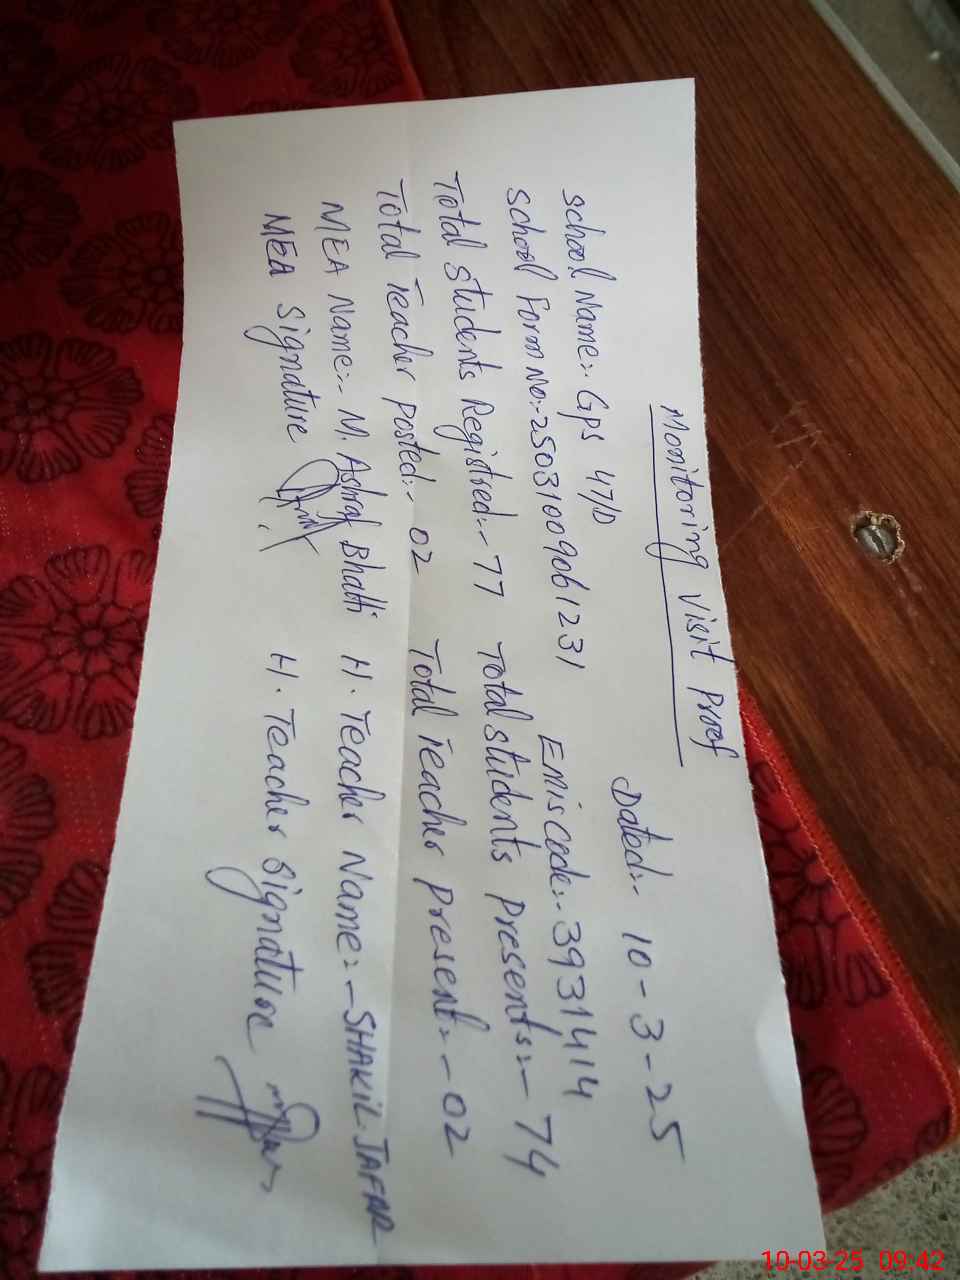 Monitoring visit Proof
Dated:- 10-3-25
School Name:- Gps 47/D
School Form No:- 25031009061231 Emis Code:- 3931414
Total Students Registred:- 77 Total students Presents:- 74
Total Teacher Posted:- 02 Total Teacher Present:- 02
MEA Name:- M. Ashraf Bhatti H. Teacher Name:- SHAKIL JAFAR
MEA Signature H. Teacher Signature
10-03-25 09:42